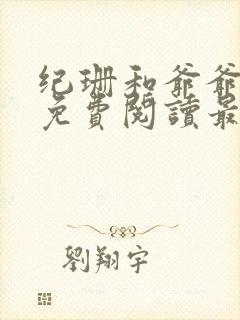 纪珊和爷爷
免費閱讀最
劉翔宇